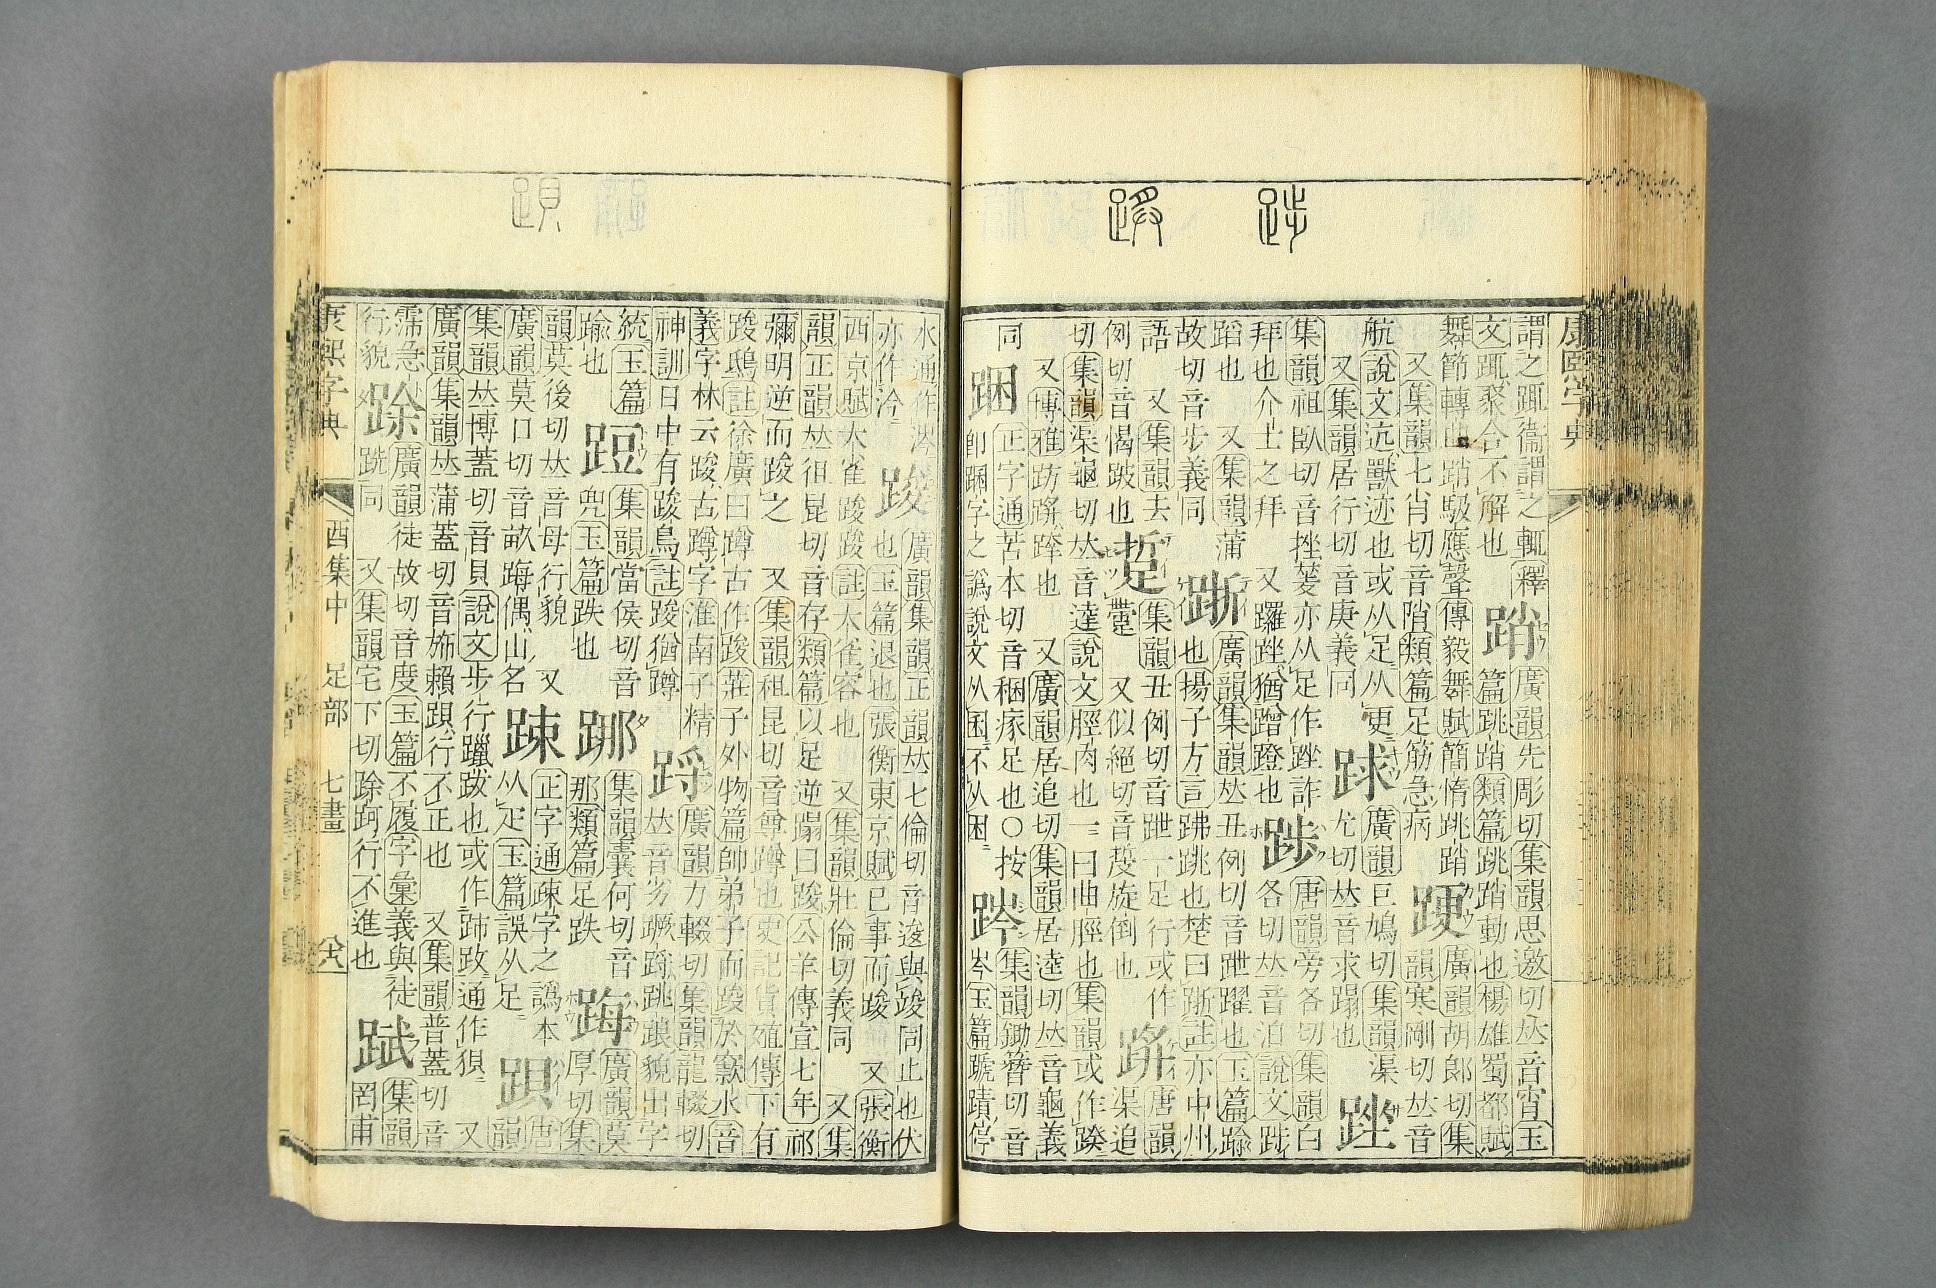 康熙字典
謂之踂衞謂之輒釋
文踂聚合不解也
踃
廣韻先彫切集韻思邀切𠀤音宵玉
篇跳踃類篇跳踃動也楊雄蜀都賦
舞節轉曲踃馺應聲傅毅舞賦簡惰跳踃
又集韻七肖切音陗類篇足筋急病
𨁈
廣韻胡郞切集
韻寒剛切𠀤音
航說文迒獸迹也或从足从更
又集韻居行切音庚義同
䟵
廣韻巨鳩切集韻渠
尤切𠀤音求蹋也
䟶
集韻祖臥切音挫夎亦从足作䟶詐
拜也介士之拜 又躍䟶猶蹭蹬也
踄
唐韻旁各切集韻白
各切𠀤音泊說文踄
蹈也 又集韻蒲
故切音步義同
䟷
廣韻集韻𠀤丑例切音跇躍也玉篇踰
也揚子方言跊跳也楚曰䟷註亦中州
語 又集韻去
例切音愒跛也
踅
集韻丑例切音跇一足行或作
躠 又似絕切音 旋倒也
䟸
唐韻渠追
切集韻渠龜切𠀤音逵說文脛肉也一曰曲脛也集韻或作
又博雅趽䟸 也 又廣韻居追切集韻居逵切𠀤音龜義
同
正字通苦本切音稛瘃足也○按
卽 字之譌說文从囷不从困
集韻鋤簪切音
岑玉篇蹏蹟停
水通作涔
亦作冷
踆
廣韻集韻正韻𠀤七倫切音逡與踆同止也伏
也玉篇退也張衡東京賦已事而踆 又張衡
西京賦大雀踆踆註大雀容也 又集韻壯倫切義同 又集
韻正韻𠀤徂昆切音存類篇以足逆蹋曰踆公羊傳宣七年祁
彌明逆而踆之 又集韻租昆切音尊蹲也史記貨殖傳下有
踆鴟註徐廣曰蹲古作踆莊子外物篇帥弟子而踆於窾水音
義字林云踆古蹲字淮南子精
神訓日中有踆烏註踆猶蹲
廣韻力輟切集韻龍輟切
𠀤音劣蹶 跳踉貌出字
統玉篇
踰也
集韻當侯切音
兜玉篇跌也
集韻囊何切音
那類篇足跌
踇
廣韻莫
厚切集
韻莫後切𠀤音母行貌 又
廣韻莫口切音畝踇偶山名
踈
正字通疎字之譌本
从𤴔玉篇誤从足
䟺
唐
韻
集韻𠀤博蓋切音貝說文步行躐跋也或作 通作狽 又
廣韻集韻𠀤蒲蓋切音旆賴䟺行不正也 又集韻普蓋切音
霈急
行貌
䟻
廣韻徒故切音度玉篇不履字彙義與徒
跣同 又集韻宅下切䟻跒行不進也
集韻
罔甫
康熙字典 酉集中 足部 七畫